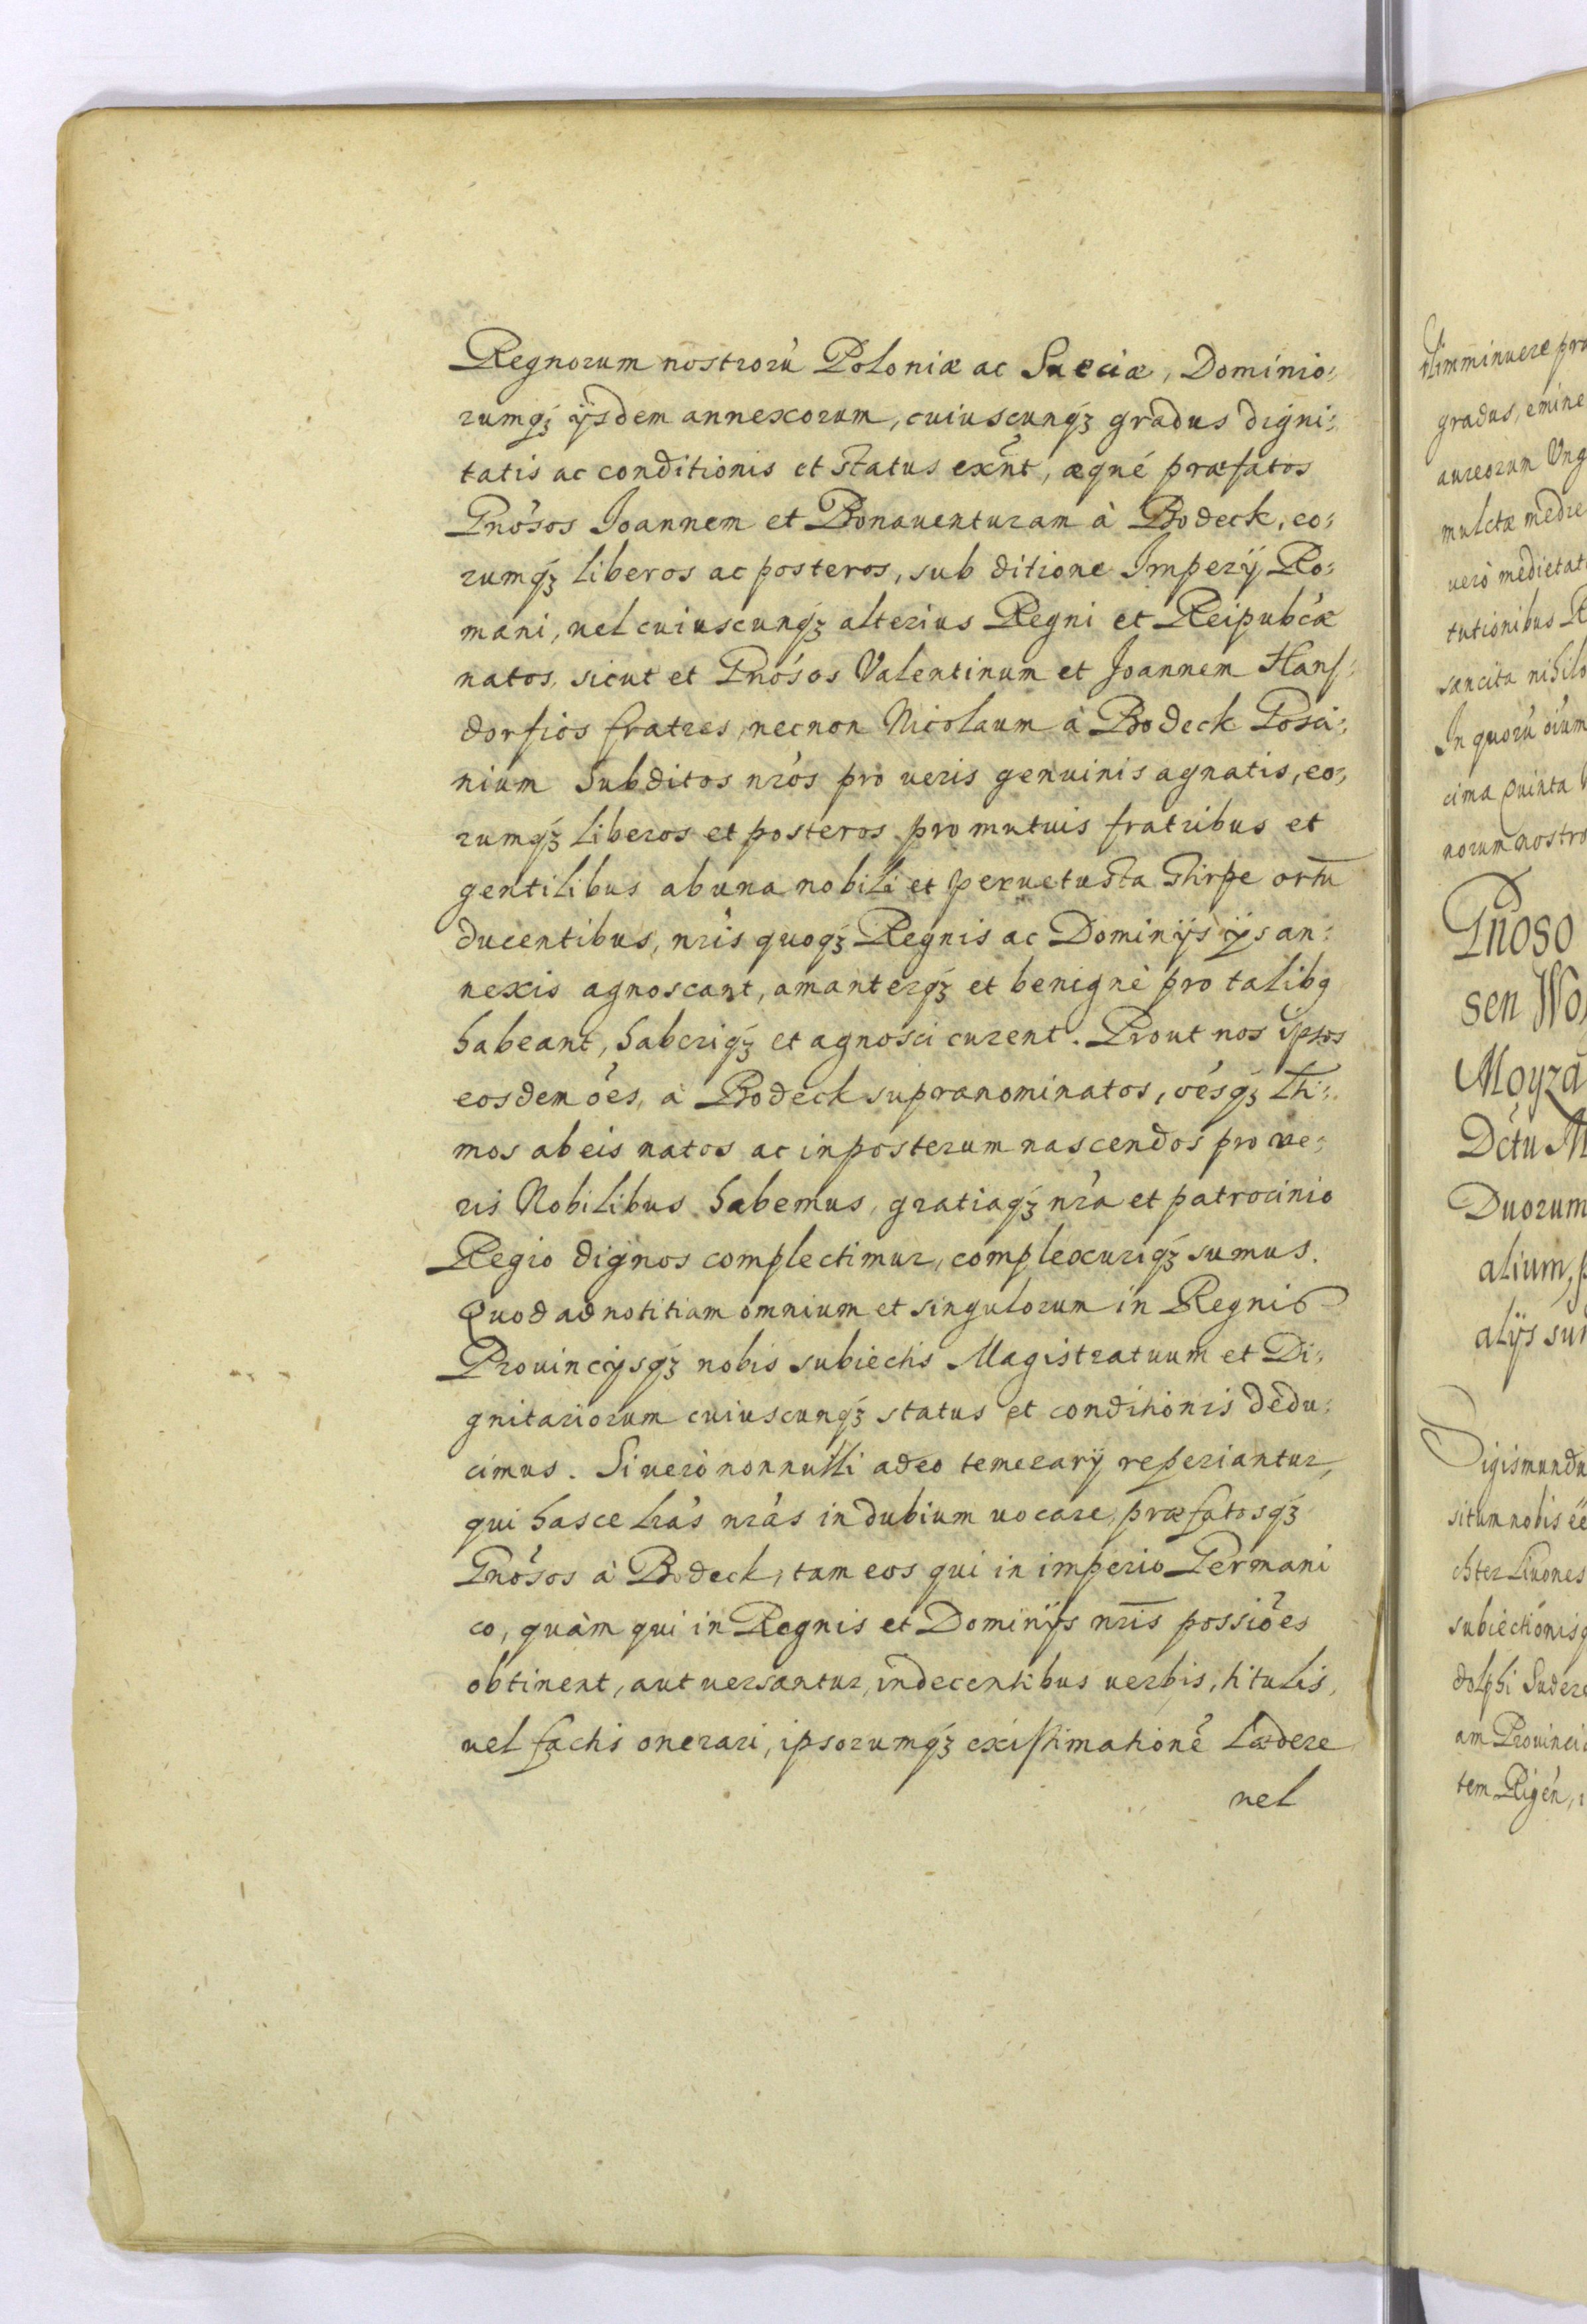 Regnorum nostrorū Poloniæ ac Sueciæ, Dominio:
rumq́ꝫ ijsdem annexorum, cuiuscunq́ꝫ gradus digni:
tatis ac conditionis et status exn̄t, æqué præfatos
Gnósos Joannem et Bonauenturam à Bodeck, eo:
rumq́ꝫ liberos ac posteros, sub ditione Imperÿ Ro:
mani, uel cuiuscunq́ꝫ alterius Regni et Reipubĉæ
natos, sicut et Gnósos Valentinum et Joannem Hans:
dorfios fratres, necnon Nicolaum à Bodeck
nium Subditos nr̃os pro ueris genuinis agnatis, eo:
rumq́ꝫ liberos et posteros pro mutuis fratribus et
gentilibus ab una nobili et peruetusta stirpe ortū
ducentibus, nr̃is quoq́ꝫ Regnis ac Dominÿs ÿs an:
nexis agnoscant, amanterq́ꝫ et benignè pro talibꝗ
habeant, haberiq́ꝫ et agnosci curent. Prout nos ipsos
eosdem óes, à Bodeck supranominatos, óesq́ꝫ lti:
mos ab eis natos ac inposterum nascendos pro ue:
ris Nobilibus habemus, gratiaq́ꝫ nr̃a et patrocinio
Regio dignos complectimur, complexuriq́ꝫ sumus.
Quod ad notitiam omnium et singulorum in Regnis
Prouincÿsq́ꝫ nobis subiectis Magistratuum et Di:
gnitariorum cuiuscunq́ꝫ status et conditionis dedu:
cimus. Si uerò nonnulli adeo temerarÿ reperiantur,
qui hasce lrás nrás in dubium uocare, præfatosq́ꝫ
Gnósos à Bodeck, tam eos qui in imperio Germani
co, quàm qui in Regnis et Dominÿs nr̃is possiões
obtinent, aut uersantur, indecentibus uerbis, titulis,
uel factis onerari, ipsorumq́ꝫ existimationẽ lædere
uel
imminuere pro
gradus, emine
aureorum Ung
mulctæ medie
uerò medietat
tutionibus R
sancita nihilo
In quorū oium
cima Quinta
norum nostro
Gnoso
sen Wo
Moyza
Dctu M
Duorum
alium, p
alÿs sun
Sigismundu
situm nobis eé
chter Liuones
subiectionisq
dolphi Sudere
am Prouincia
tem Rigén,